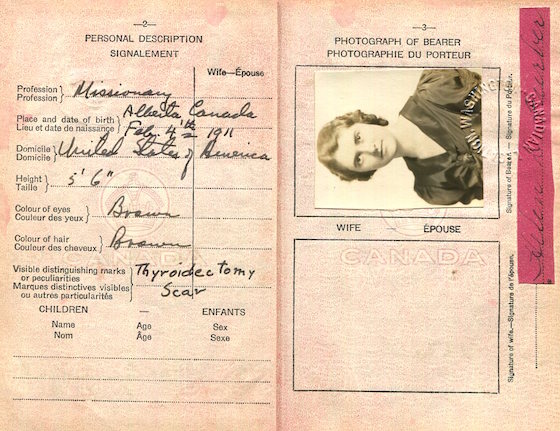 —2—
PERSONAL DESCRIPTION
SIGNALEMENT
Wife—Épouse
Profession
Profession
Missionary
Place and date of birth
Lieu et date de naissance
Alberta Canada
Feb. 4th 1911
Domicile
Domicile
United States of America
Height
Taille
5' 6"
Colour of eyes
Couleur des yeux
Brown
Colour of hair
Couleur des cheveux
Brown
Visible distinguishing marks
or peculiarities
Marques distinctives visibles
ou autres particularités
Thyroidectomy
Scar
CHILDREN — ENFANTS
Name Age Sex
Nom Âge Sexe
—3—
PHOTOGRAPH OF BEARER
PHOTOGRAPHIE DU PORTEUR
WASHINGTON
WIFE ÉPOUSE
CANADA
Signature of Bearer.—Signature du Porteur.
Signature of wife.—Signature de l'épouse.